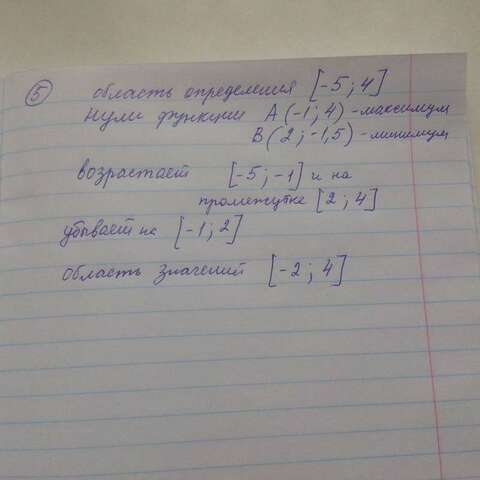 5 область определения [-5; 4]
нули функции А (-1; 4) - максимум
В (2; -1,5) - минимум
возрастает [-5; -1] и на
промежутке [2; 4]
убывает на [-1; 2]
область значений [-2; 4]